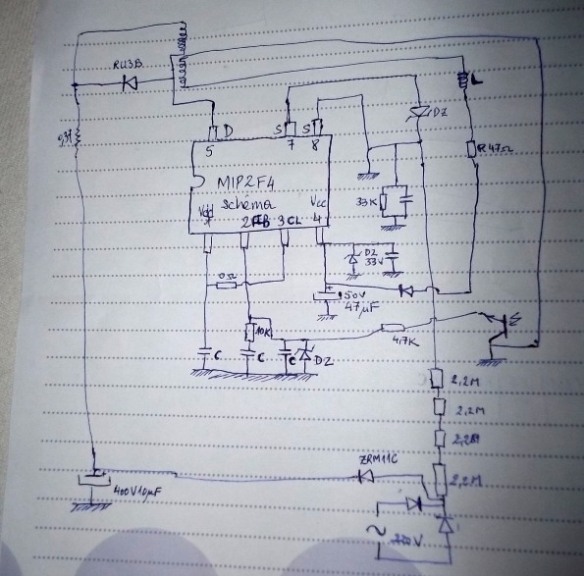 RU3B
D
S
S
5
7
8
DZ
L
R47Ω
MIP2F4
Schema
Vdd
Vcc
2
FB
3
CL
4
33K
0Ω
DZ
33V
50V
47µF
10K
4,7K
C
C
C
DZ
2,2M
2,2M
2,2M
2,2M
ZRM11C
400V10µF